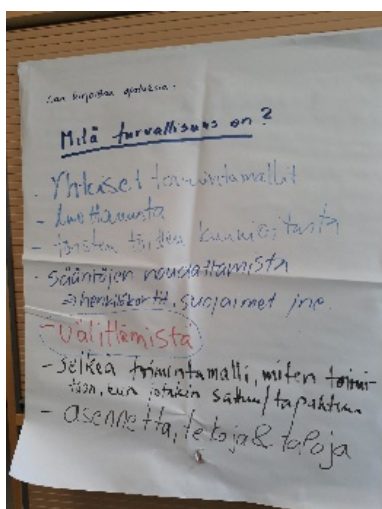 kirjoittaa ajatuksia.
Mitä turvallisuus on?
- Yhteiset toimintamallit
- luottamusta
- toisten töiden kunnioitusta
- sääntöjen noudattamista
henkilökortit, suojaimet jne.
- välittämistä
- selkeä toimintamalli, miten toimi-
taan, kun jotakin sattuu/tapahtuu
- asennetta, tekoja & tapoja